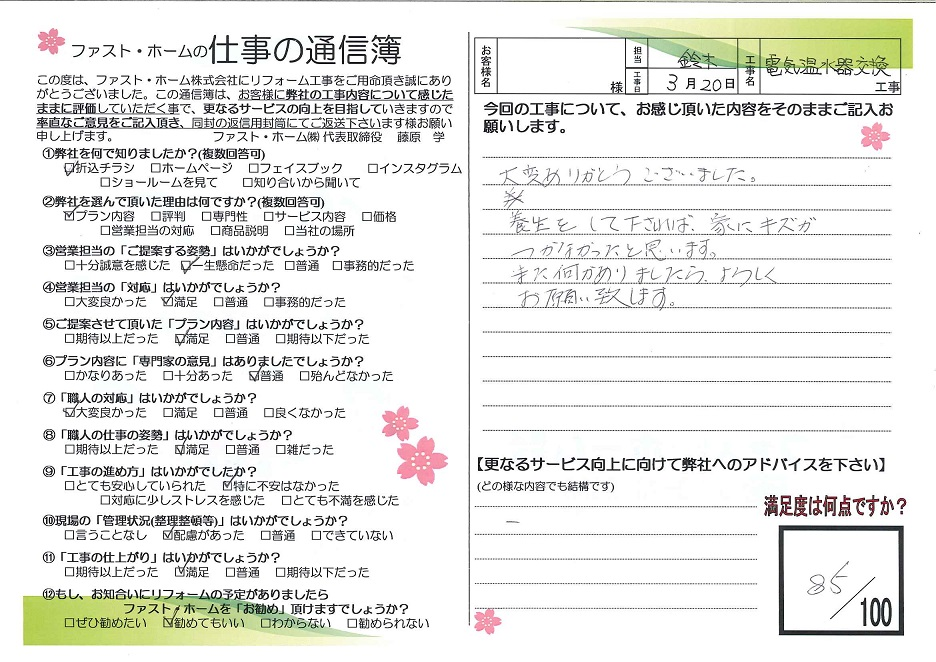 ファスト・ホームの仕事の通信簿
この度は、ファスト・ホーム株式会社にリフォーム工事をご用命頂き誠にあり
がとうございました。この通信簿は、お客様に弊社の工事内容について感じた
ままに評価していただく事で、更なるサービスの向上を目指していきますので
率直なご意見をご記入頂き、同封の返信用封筒にてご返送下さいます様お願い
申し上げます。 ファスト・ホーム㈱ 代表取締役 藤原 学
①弊社を何で知りましたか？(複数回答可)
☑折込チラシ □ホームページ □フェイスブック □インスタグラム
□ショールームを見て □知り合いから聞いて
②弊社を選んで頂いた理由は何ですか？(複数回答可)
☑プラン内容 □評判 □専門性 □サービス内容 □価格
□営業担当の対応 □商品説明 □当社の場所
③営業担当の「ご提案する姿勢」はいかがでしょうか？
□十分誠意を感じた ☑一生懸命だった □普通 □事務的だった
④営業担当の「対応」はいかがでしょうか？
□大変良かった ☑満足 □普通 □事務的だった
⑤ご提案させて頂いた「プラン内容」はいかがでしょうか？
□期待以上だった ☑満足 □普通 □期待以下だった
⑥プラン内容に「専門家の意見」はありましたでしょうか？
□かなりあった □十分あった ☑普通 □殆んどなかった
⑦「職人の対応」はいかがでしょうか？
☑大変良かった □満足 □普通 □良くなかった
⑧「職人の仕事の姿勢」はいかがでしょうか？
□期待以上だった ☑満足 □普通 □雑だった
⑨「工事の進め方」はいかがでしたか？
□とても安心していられた ☑特に不安はなかった
□対応に少しストレスを感じた □とても不満を感じた
⑩現場の「管理状況(整理整頓等)」はいかがでしょうか？
□言うことなし ☑配慮があった □普通 □できていない
⑪「工事の仕上がり」はいかがでしょうか？
□期待以上だった ☑満足 □普通 □期待以下だった
⑫もし、お知合いにリフォームの予定がありましたら
ファスト・ホームを「お勧め」頂けますでしょうか？
□ぜひ勧めたい ☑勧めてもいい □わからない □勧められない
お客様名 様 担当 鈴木 工事日 3月20日 工事名 電気温水器交換 工事
今回の工事について、お感じ頂いた内容をそのままご記入お
願いします。
大変ありがとうございました。
養生をして下されば、家にキズが
つかなかったと思います。
また何かありましたら、よろしく
お願い致します。
【更なるサービス向上に向けて弊社へのアドバイスを下さい】
(どの様な内容でも結構です)
満足度は何点ですか？
85/100